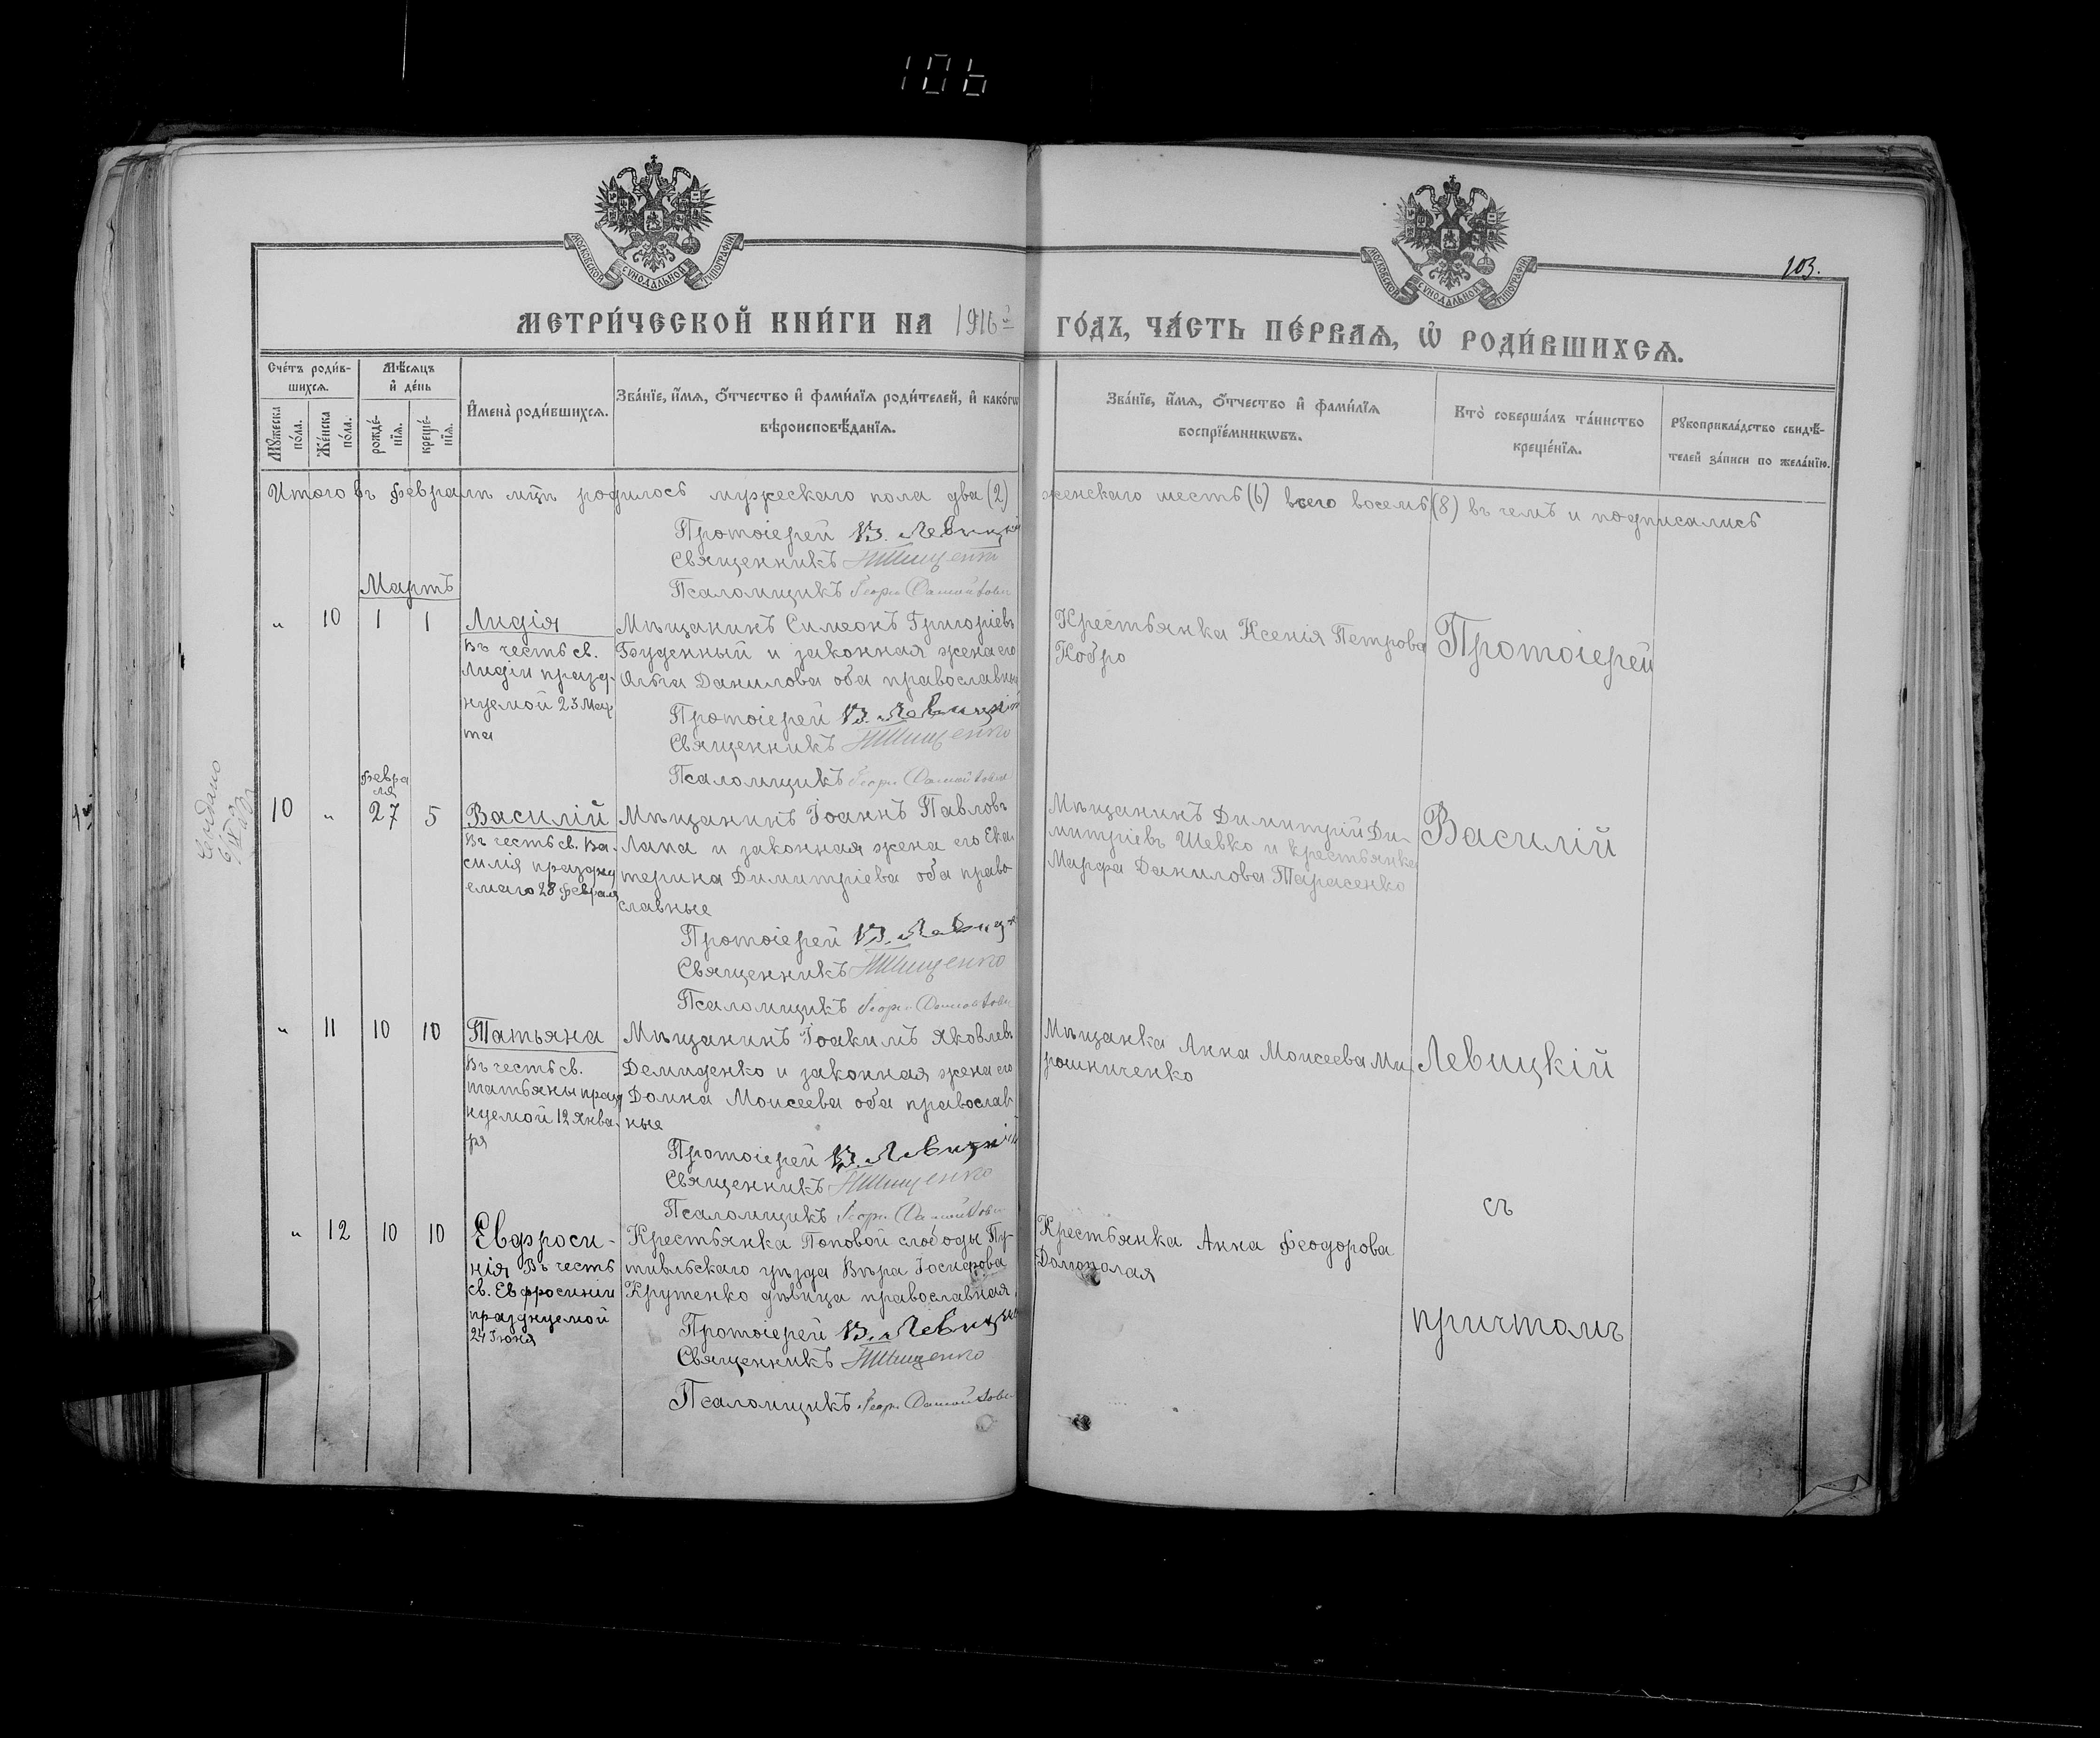 106
МОСКОВСКОЙ СѴНОДАЛЬНОЙ ТИПОГРАФІИ
МОСКОВСКОЙ СѴНОДАЛЬНОЙ ТИПОГРАФІИ
103.
МЕТРИ́ЧЕСКОЙ КНИ́ГИ НА 1916й ГО́ДЪ, ЧА́СТЬ ПЕ́РВАѦ, Ѡ҆ РОДИ́ВШИХСѦ.
Сче́тъ роди́в-
шихсѧ.
Мѣ́сѧцъ
и҆ де́нь
Мꙋ́жеска
по́ла.
Же́нска
по́ла.
рожде́-
нїѧ.
креще́-
нїѧ.
И҆мена̀ роди́вшихсѧ.
Зва́нїе, и҆́мѧ, ѻ҆́тчество и҆ фами́лїѧ роди́телей, и҆ како́гѡ
вѣроисповѣ́данїѧ.
Зва́нїе, и҆́мѧ, ѻ҆́тчество и҆ фами́лїѧ
воспрїе́мникѡвъ.
Кто̀ соверша́лъ та́инство
креще́нїѧ.
Рꙋкоприкла́дство свидѣ́-
телей за́писи по жела́нїю.
Итого въ февралѣ мцѣ родилось мужескаго пола два (2) женскаго шесть (6) всего восемь (8) въ чемъ и подписались
Протоіерей В. Левицкій
Священникъ Н Тищенко
Псаломщикъ Георг.
Мартъ
" 10 1 1
Лидія
Въ честь св.
Лидіи празд-
нуемой 23 Мар
та
Мѣщанинъ Симеонъ Григоріевъ
Буденный и законная жена его
Ольга Данилова оба православны
Протоіерей В. Левицкій
Священникъ Н Тищенко
Псаломщикъ Георг.
Крестьянка Ксенія Петрова
Кобро
Протоіерей
Выдано
февра
ля
10 " 27 5
Василій
Въ честь св. Ва-
силія праздну
емаго 28 Февраля
Мѣщанинъ Іоаннъ Павловъ
Лапа и законная жена его Ека-
терина Димитріева оба право
славные
Протоіерей В. Левицк
Священникъ Н Тищенко
Псаломщикъ Георг.
Мѣщанинъ Димитрій Ди-
митріевъ Шевко и крестьянка
Марфа Данилова Тарасенко
Василій
" 11 10 10
Татьяна
Въ честь св.
татьяны празд
нуемой 12 Янва-
ря
Мѣщанинъ Іоакимъ Яковлевъ
Демиденко и законная жена его
Домна Моисеева оба православ
ные
Протоіерей В. Левицкій
Священникъ Н Тищенко
Псаломщикъ Георг.
Мѣщанка Анна Моисеева Ми-
рошниченко
Левицкій
съ
" 12 10 10
Евфроси-
нія Въ честь
св. Евфросиніи
празднуемой
24 Іюня
Крестьянка Поповой слободы Пу-
тивльскаго уѣзда Вѣра Іосифова
Крутенко дѣвица православная
Протоіерей В. Левицкій
Священникъ Н Тищенко
Псаломщикъ Георг.
Крестьянка Анна Феодорова
Долгополая
причтомъ